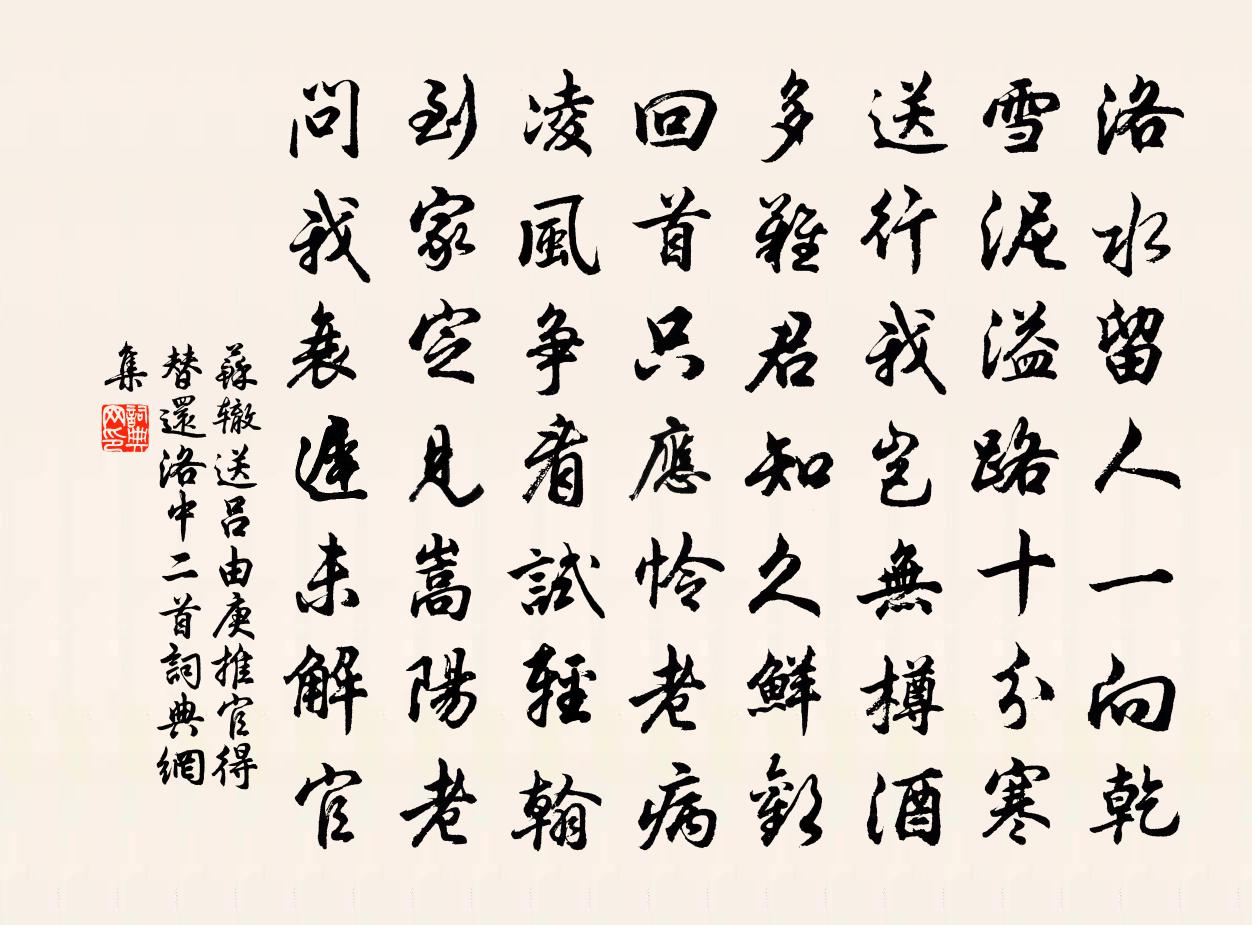 洛水留人一向乾
雪泥溢路十分寒
送行我豈無樽酒
多難君知久鮮歡
回首只應憐老病
凌風争看試輕翰
到家定見嵩陽老
問我衰遲未解官
蘇辙送呂由庚推官得
替還洛中二首詞典網
集
詞典网印